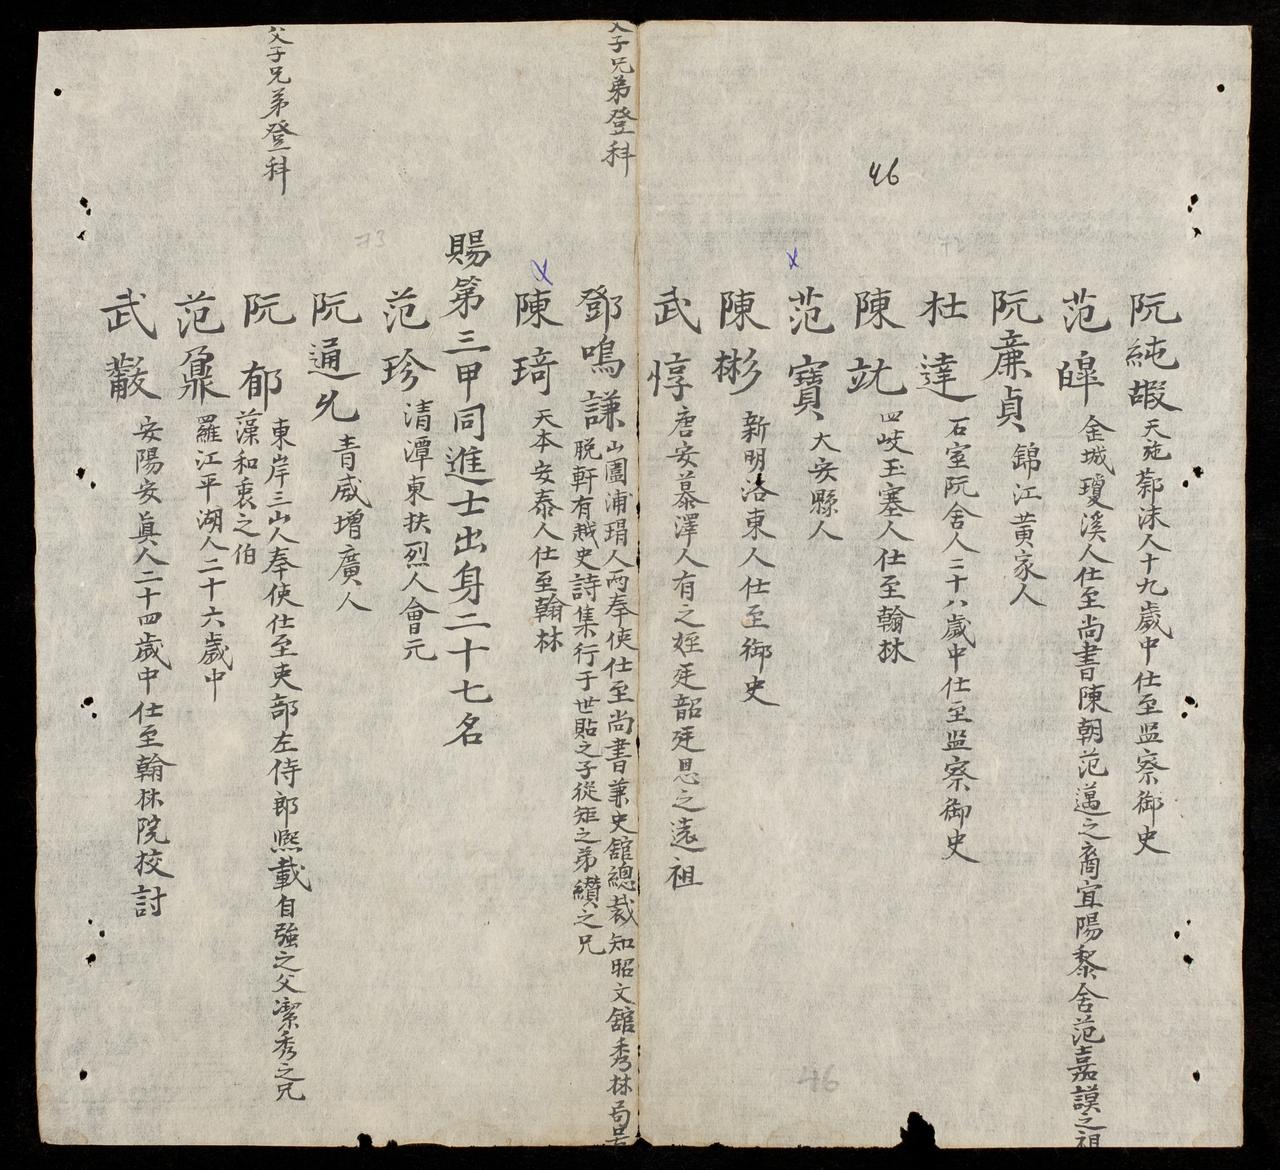 46
阮純嘏 天施鄚沫人十九歲中仕至监察御史
范皡 金城瓊溪人仕至尚書陳朝范邁之裔宜陽黎舍范嘉謨之祖
阮亷貞 錦江黃家人
杜達 石室阮舍人二十八歲中仕至监察御史
陳䢺 四岐玉塞人仕至翰林
范寶 大安縣人
陳彬 新明洛東人仕至御史
武惇 唐安慕澤人有之姪廷韶廷恩之遠祖
父子兄弟登科
鄧鳴謙 山圍浦琄人两奉使仕至尚書兼史舘總裁知昭文舘秀林局号
脱軒有越史詩集行于世貼之子從矩之弟纘之兄
陳琦 天本安泰人仕至翰林
賜第三甲同進士出身二十七名
范珍 清潭東扶烈人會元
73
阮通允 青威增廣人
父子兄弟登科
阮郁 東岸三山人奉使仕至吏部左侍郎熈載自強之父潔秀之兄
藻和衷之伯
范鼐 羅江平湖人二十六歲中
武黻 安陽安真人二十四歲中仕至翰林院校討
46